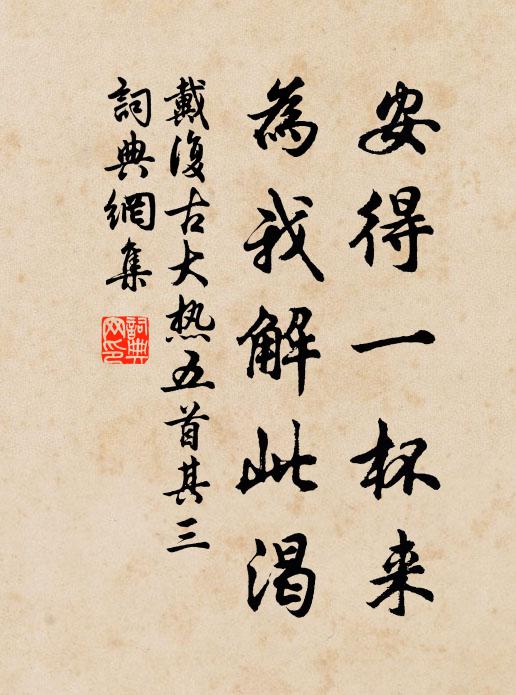 安得一杯来
為我解此渴
戴復古大热五首其三
詞典網集
詞典網印